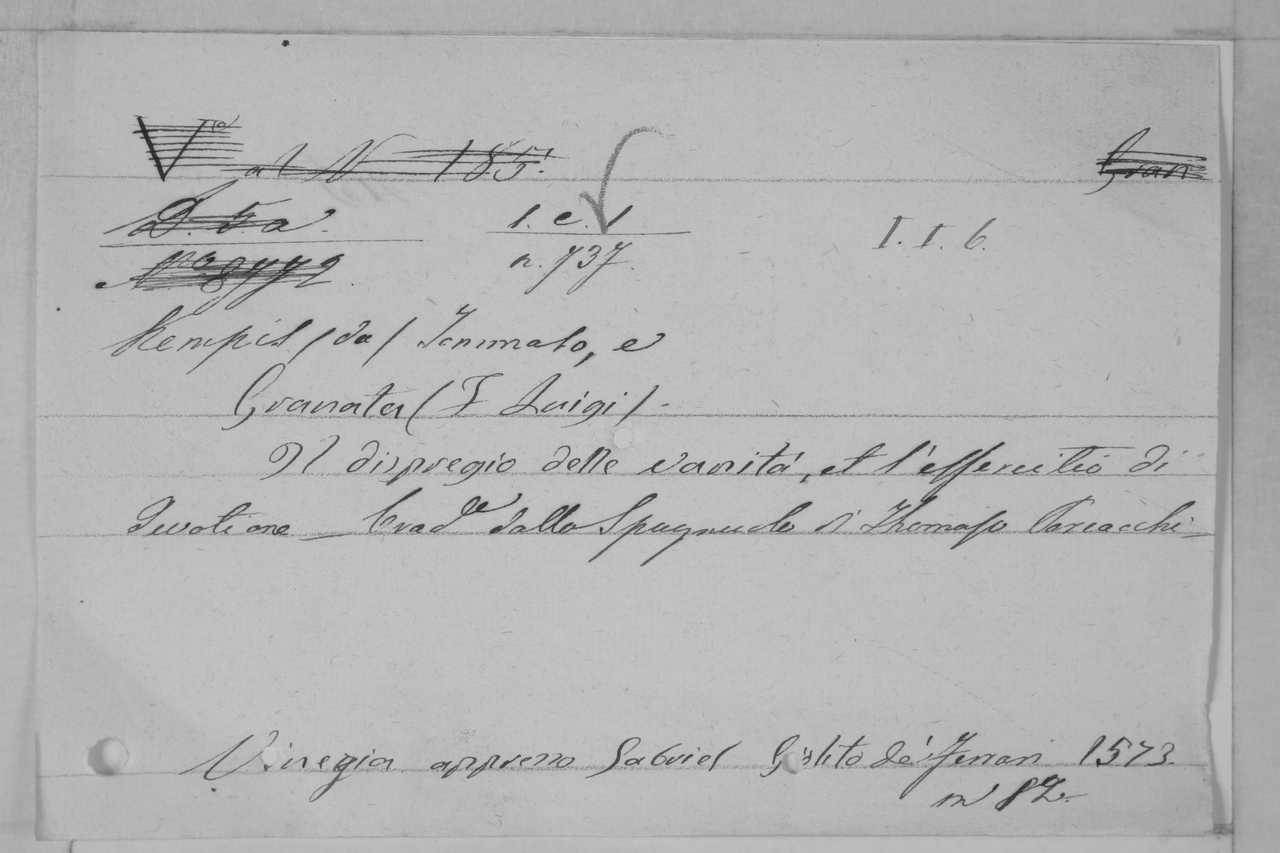 V.a al N 185. Gran
D. 5 a. 1. c. 1 I. I. 6.
n. 737.
Kempis (da) Tommaso, e
Granata (F Luigi) -
Il dispregio delle vanità, et l'essercitio di
devotione _ trad.e dallo Spagnuolo di Thomaso Porcacchi -
Vinegia appresso Gabriel Giolito de' Ferrari 1573.
in 8º.-